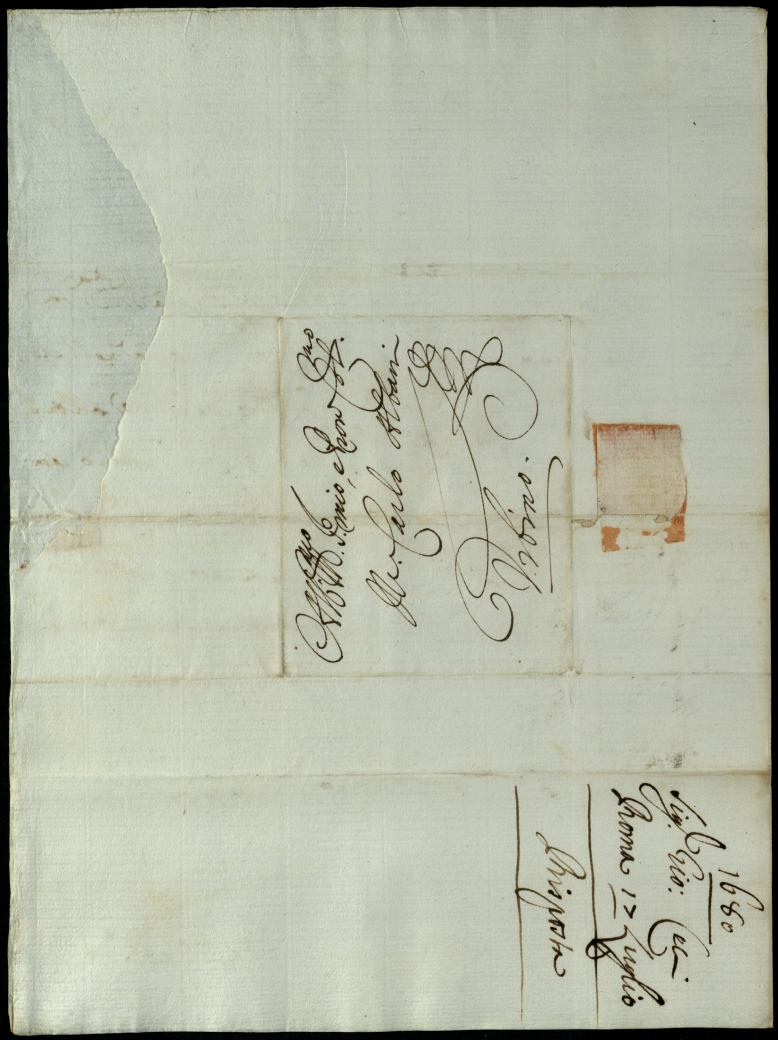 All' Ill.mo Sig.re mio, e Pron Col.mo
Il Sig.r Carlo Albani
Urbino.
1680
Sig.r Gio: Ceci
Roma 17 Luglio
Risposta